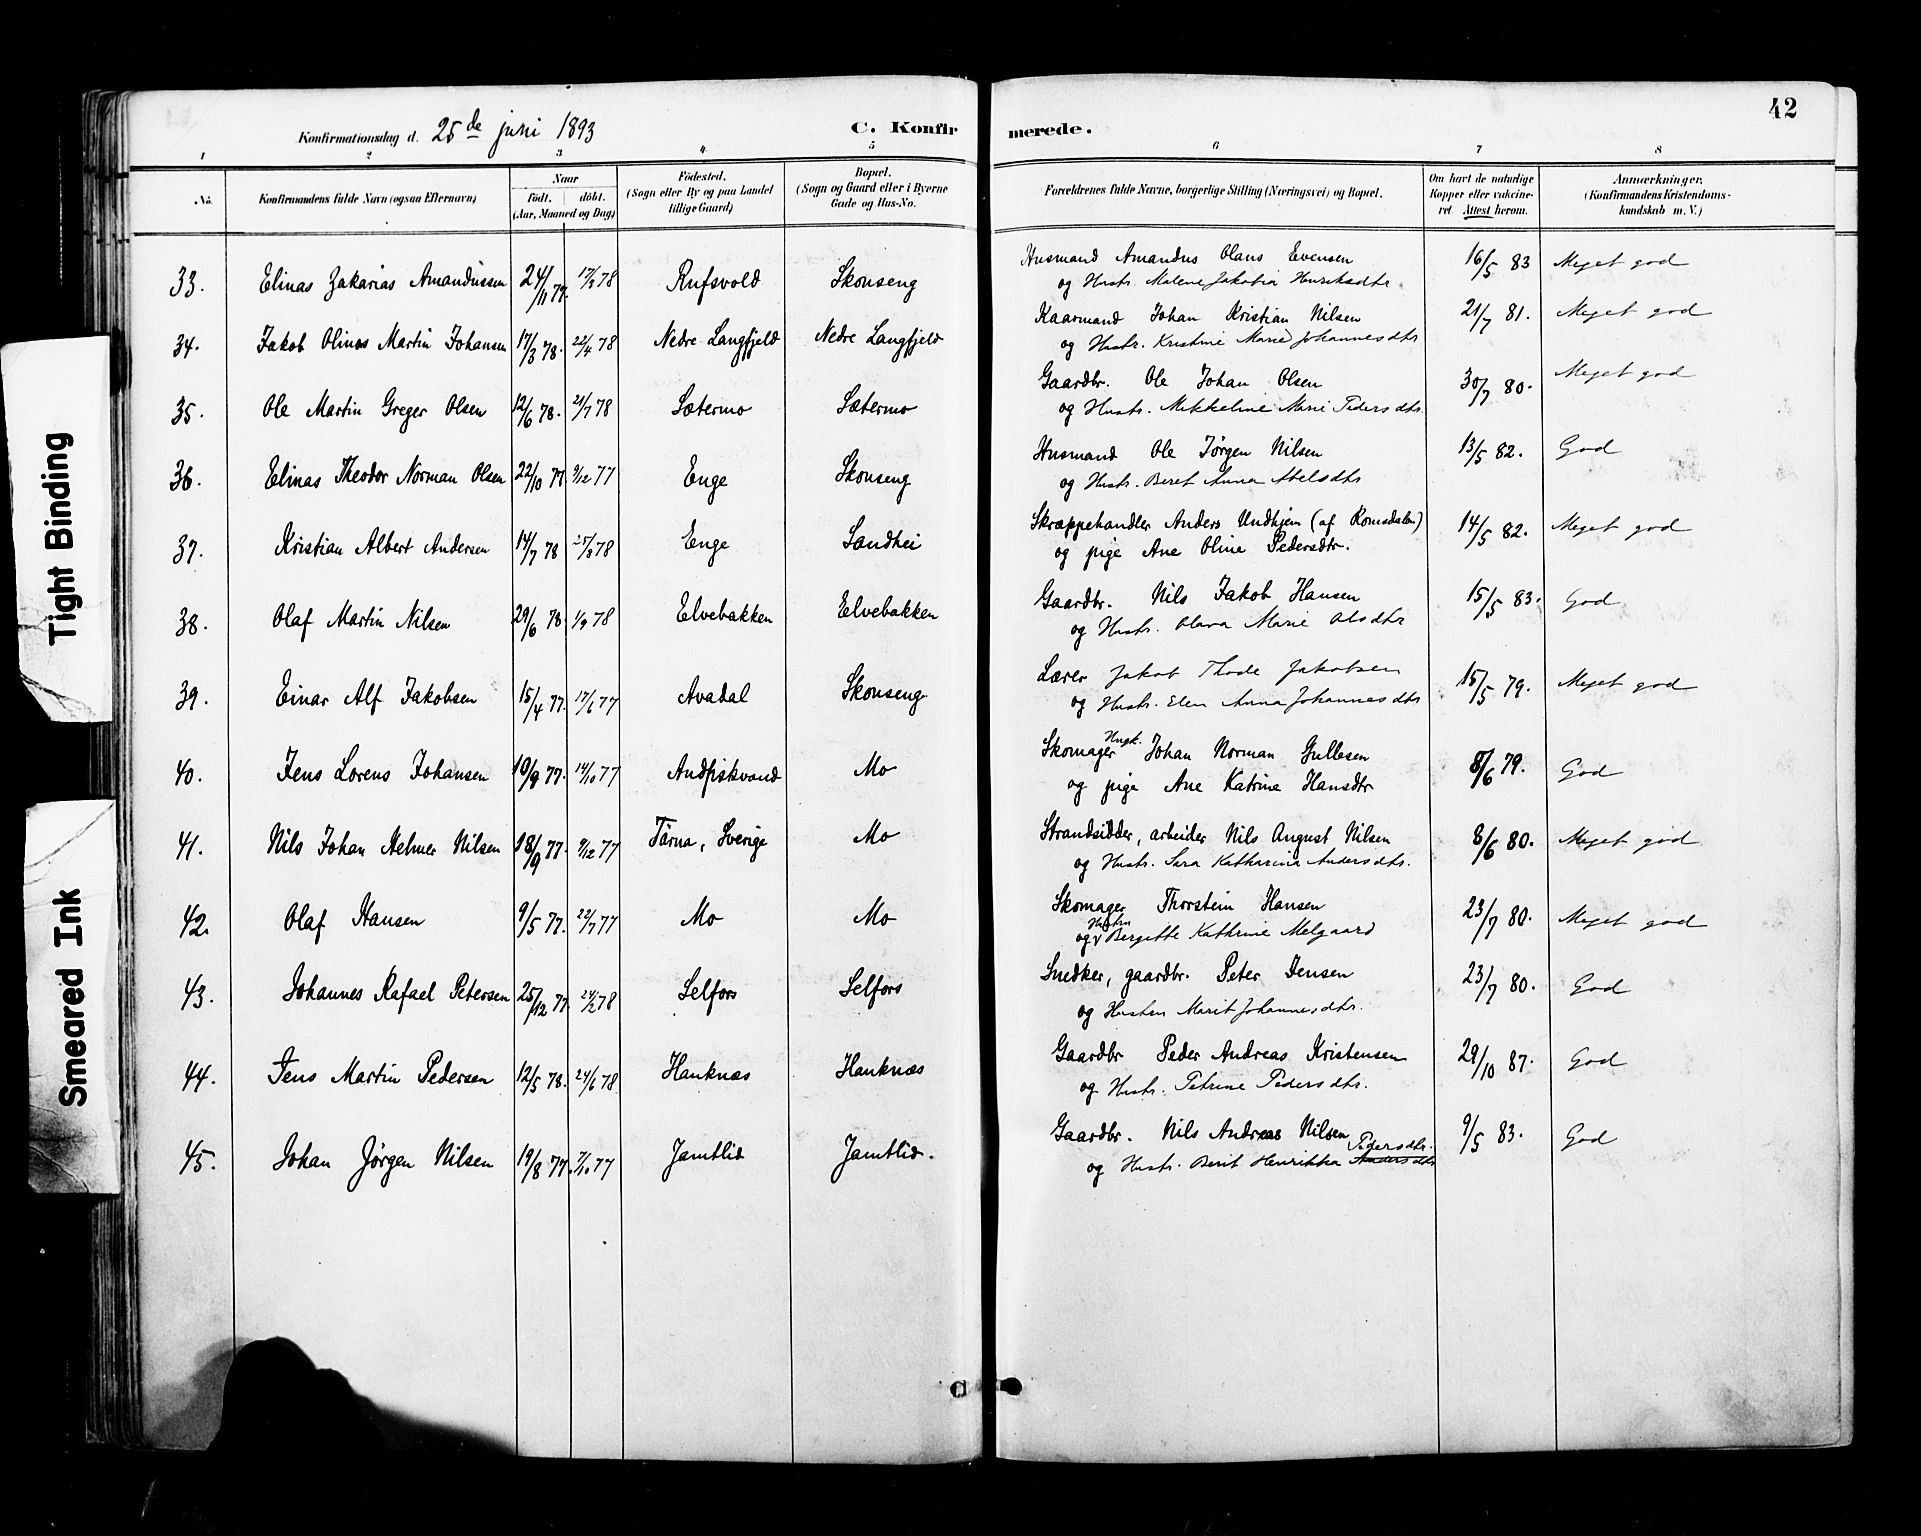 42
Konfirmationsdag d. 25de juni 1893 C. Konfirmerede.
1 2 3 4 5 6 7 8
No. Konfirmandens fulde Navn (ogsaa Efternavn) Naar födt. döbt. (Aar, Maaned og Dag) Födested. (Sogn eller By og paa Landet tillige Gaard) Bopæl. (Sogn og Gaard eller i Byerne Gade og Hus-No. Forældrenes fulde Navne, borgerlige Stilling (Næringsvei) og Bopæl. Om havt de naturlige Kopper eller vaccineret. Attest herom. Anmærkninger. (Konfirmandens Kristendomskundskab m. V.)
33. Elinas Zakarias Amandussen 24/11 77. 17/3 78 Rufsvold Skonseng Husmand Amandus Olaus Evensen 16/5 83 Meget god
og Hustr. Malene Jakobia Henriksdtr.
34. Jakob Olinas Martin Johansen 17/3 78. 22/4 78 Nedre Langfjeld Nedre Langfjeld Kaarmand Johan Kristian Nilsen 21/7 81. Meget god
og Hustr. Kristine Marie Johannesdtr
35. Ole Martin Greger Olsen 12/6 78. 21/7 78 Sætermo Sætermo Gaardbr. Ole Johan Olsen 30/7 80. Meget god
og Hustr. Mikkeline Marie Pedersdtr.
36. Elinas Theodor Norman Olsen 22/10 77 9/12 77 Enge Skonseng Husmand Ole Jørgen Nilsen 13/5 82. God
og Hustr. Beret Anna Abelsdtr
37. Kristian Albert Andersen 14/7 78 25/8 78 Enge Sandhei Skræppehandler Anders Undhjem (af Romsdalen) 14/5 82. Meget god
og pige Ane Oline Pedersdtr.
38. Olaf Martin Nilsen 29/6 78. 1/9 78 Elvebakken Elvebakken Gaardbr. Nils Jakob Hansen 15/5 83. God
og Hustr. Olava Marie Olsdtr
39. Einar Alf Jakobsen 15/4 77. 17/6 77 Avadal Skonseng. Lærer Jakob Thode Jakobsen 15/5 79. Meget god
og Hustr. Elen Anna Johannesdtr
40. Jens Lorens Johansen 10/9 77. 14/10 77 Andfiskvand Mo Skomager Ungk. Johan Norman Gullesen 8/6 79. God
og pige Ane Katrine Hansdtr
41. Nils Johan Helmer Nilsen 18/9 77. 9/12 77 Tärna, Sverige Mo Strandsidder, arbeider Nils August Nilsen 8/6 80. Meget god
og Hustr. Sara Katharina Andersdtr.
42. Olaf Hansen 9/5 77. 22/7 77 Mo Mo Skomager Thorstein Hansen 23/7 80. Meget god
og Hustru Bergitte Kathrine Melgaard
43. Johannes Rafael Petersen 25/12 77. 24/2 78 Selfors Selfors Snedker, gaardbr. Peter Jensen 23/7 80. God
og Hustru Marit Johannesdtr.
44. Jens Martin Pedersen 12/5 78. 24/6 78 Hauknæs Hauknæs Gaardbr Peder Andreas Kristensen 29/10 87. God
og Hustr. Petrine Pedersdtr.
45. Johan Jørgen Nilsen 19/8 77. 7/10 77 Jamtlid Jamtlid. Gaardbr. Nils Andreas Nilsen 9/5 83. God
og Hustr. Berit Henrikka Andersdtr Pedersdtr.
Tight Binding
Smeared Ink